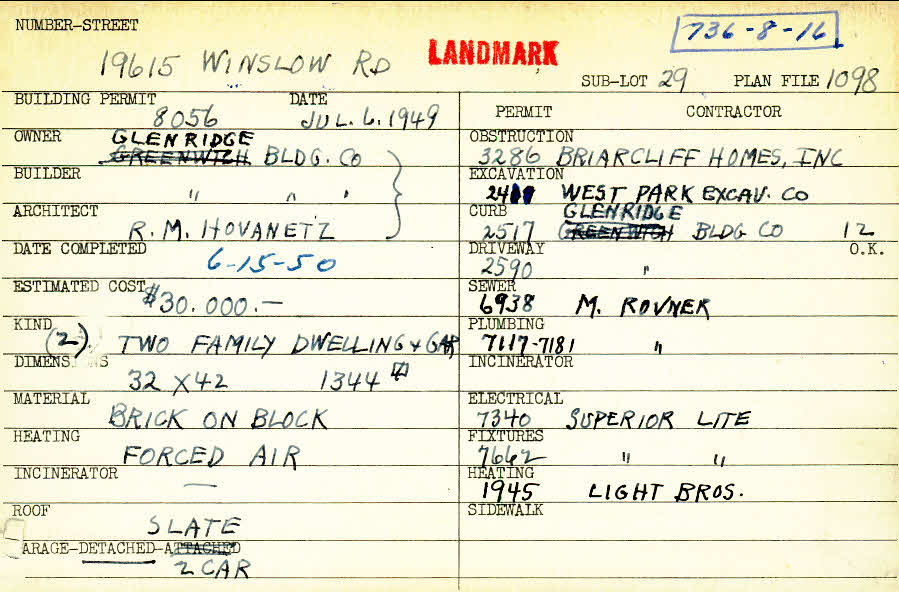 NUMBER-STREET
19615 WINSLOW RD
LANDMARK
736-8-16
SUB-LOT 29 PLAN FILE 1098
BUILDING PERMIT DATE
8056 JUL. 6. 1949
OWNER GLENRIDGE
GREENWICH BLDG. CO
BUILDER
" " "
ARCHITECT
R. M. HOVANETZ
DATE COMPLETED
6-15-50
ESTIMATED COST
$30.000.—
KIND
(2) TWO FAMILY DWELLING & GAR
DIMENS NS
32 X 42 1344
MATERIAL
BRICK ON BLOCK
HEATING
FORCED AIR
INCINERATOR
—
ROOF
SLATE
ARAGE-DETACHED-ATTACHED
2 CAR
PERMIT CONTRACTOR
OBSTRUCTION
3286 BRIARCLIFF HOMES, INC
EXCAVATION
WEST PARK EXCAV. CO
CURB GLENRIDGE
2517 GREENWICH BLDG CO 12
DRIVEWAY O.K.
2590 "
SEWER
6938 M. ROVNER
PLUMBING
7117-7181 "
INCINERATOR
ELECTRICAL
7340 SUPERIOR LITE
FIXTURES
7662 " "
HEATING
1945 LIGHT BROS.
SIDEWALK